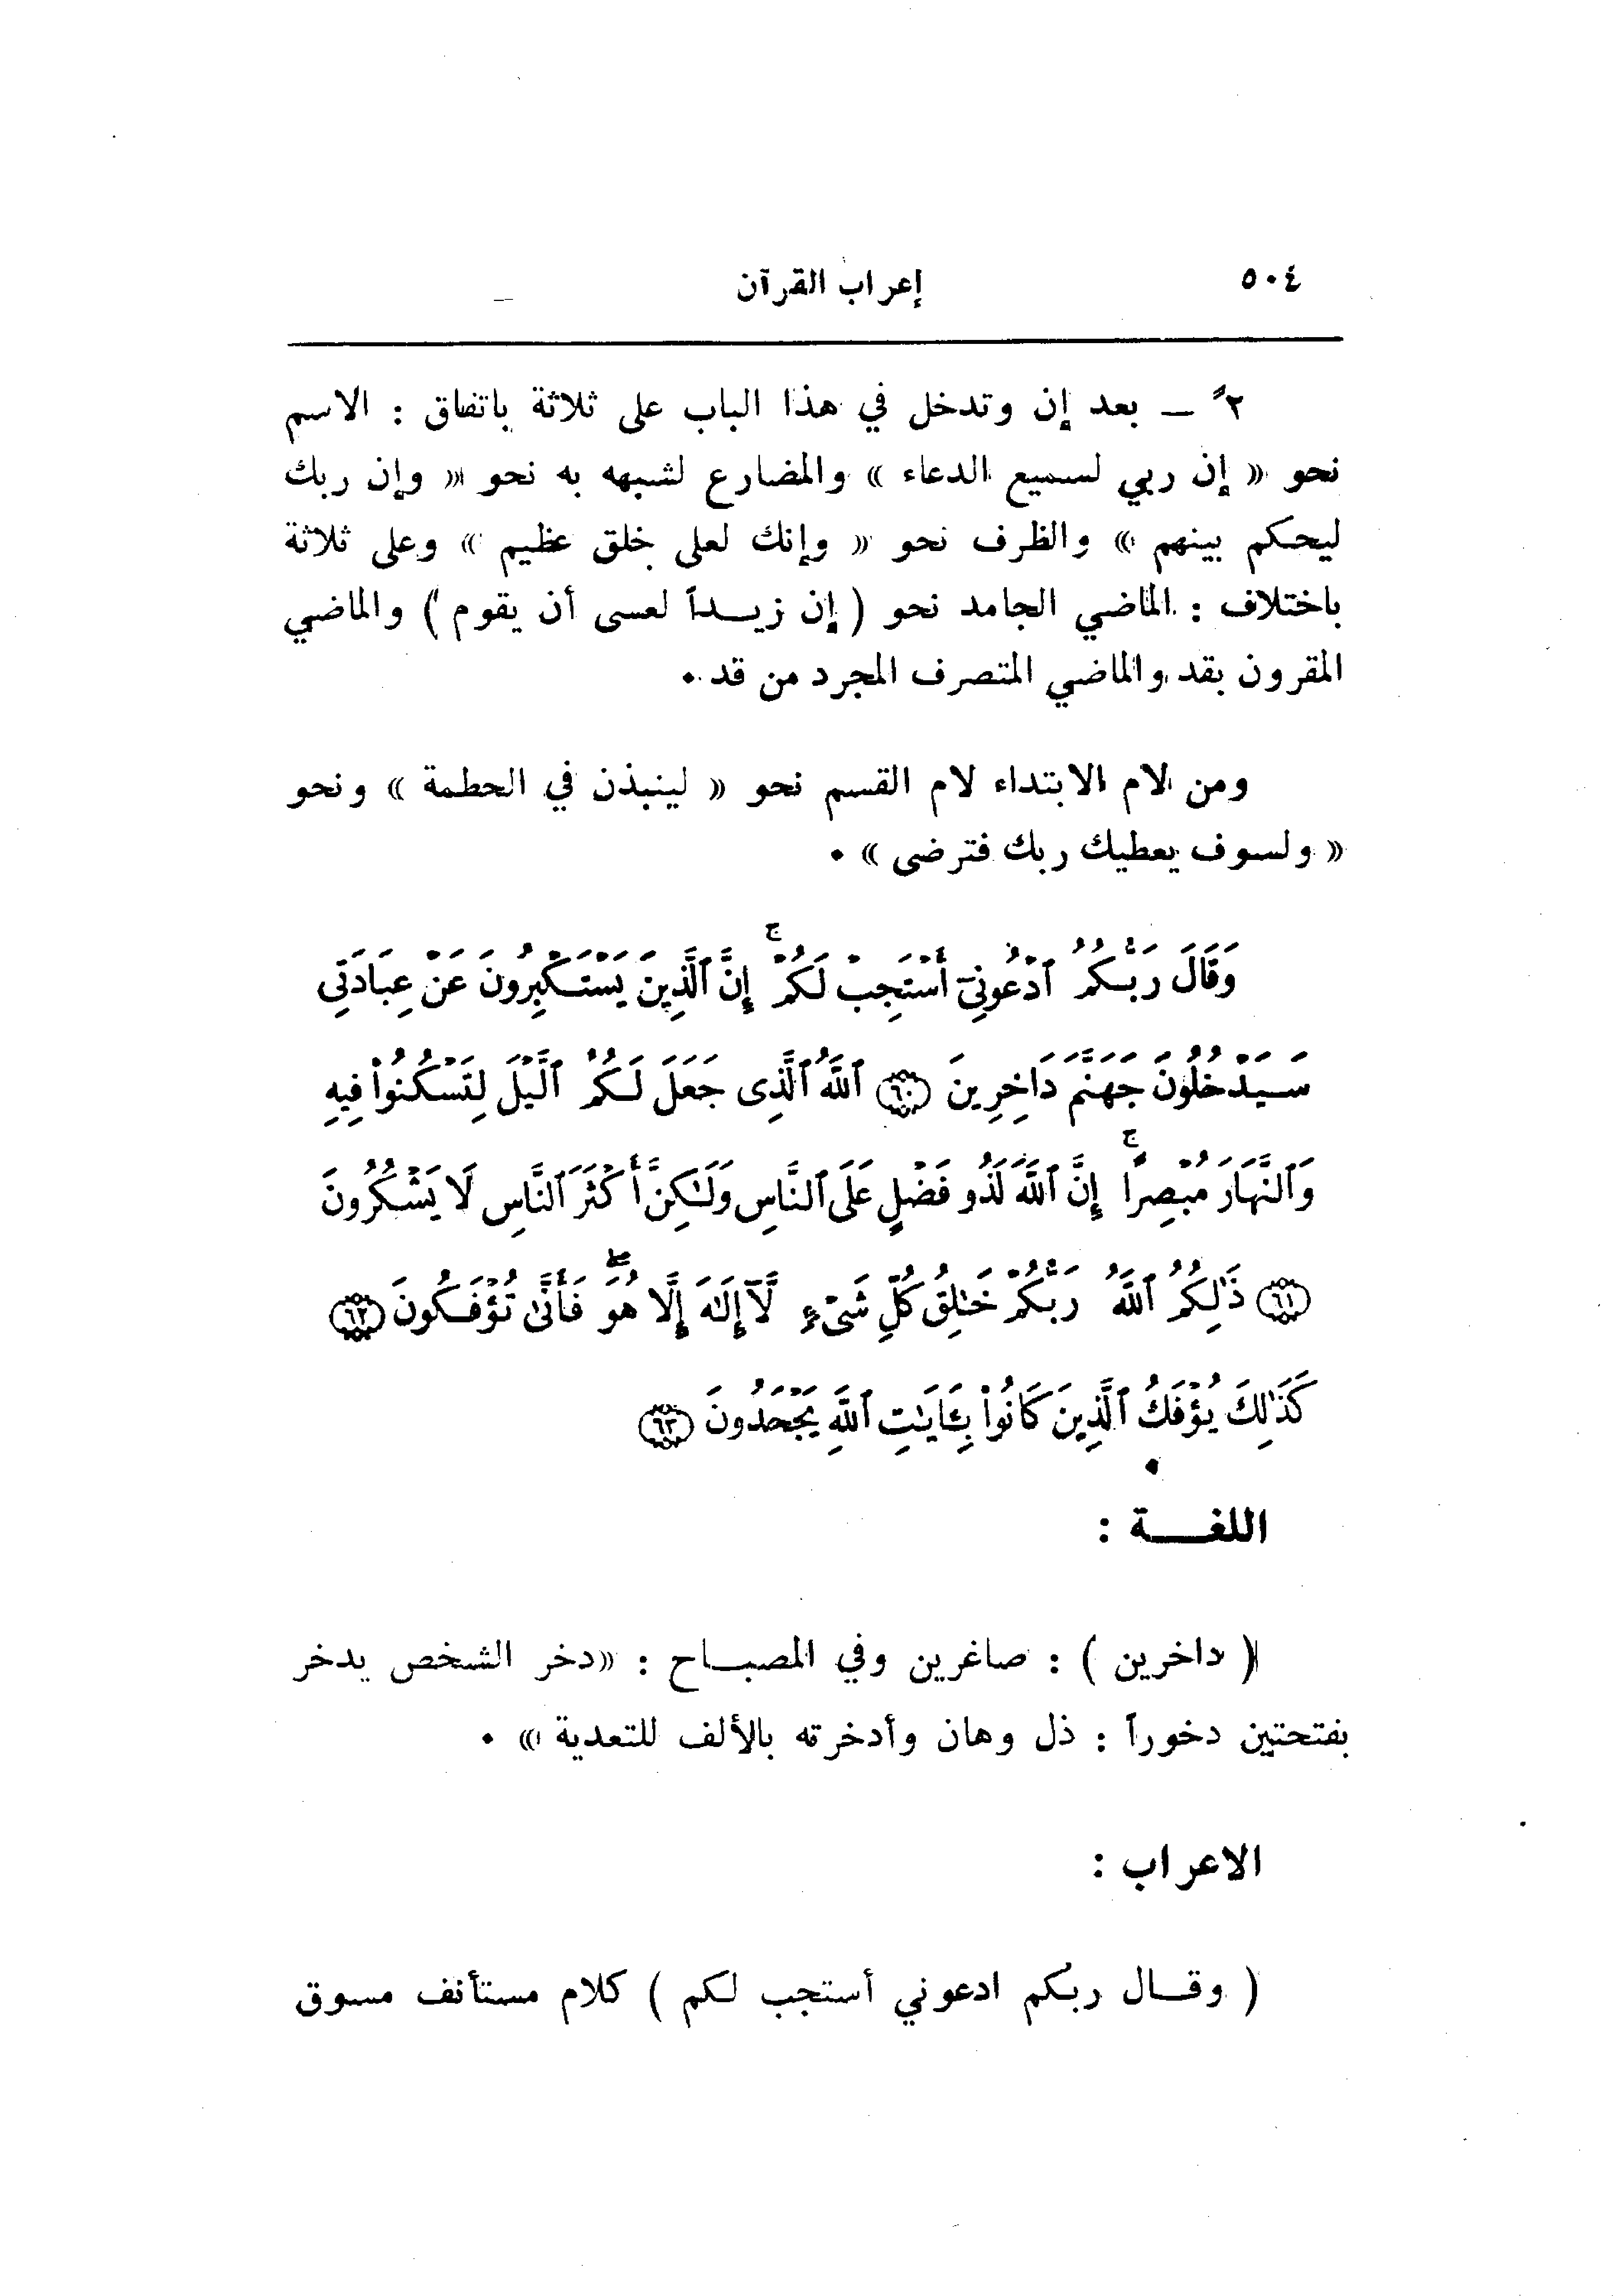 ٥٠٤ إعراب القرآن
٢ً – بعد إن وتدخل في هذا الباب على ثلاثة باتفاق : الاسم
نحو « إن ربي لسميع الدعاء » والمضارع لشبهه به نحو « وإن ربك
ليحكم بينهم » والظرف نحو « وإنك لعلى خلق عظيم » وعلى ثلاثة
باختلاف : الماضي الجامد نحو ( إن زيداً لعسى أن يقوم ) والماضي
المقرون بقد والماضي المتصرف المجرد من قد .
ومن لام الابتداء لام القسم نحو « لينبذن في الحطمة » ونحو
« ولسوف يعطيك ربك فترضى » .
وَقَالَ رَبُّكُمُ ٱدْعُونِىٓ أَسْتَجِبْ لَكُمْ ۚ إِنَّ ٱلَّذِينَ يَسْتَكْبِرُونَ عَنْ عِبَادَتِى
سَيَدْخُلُونَ جَهَنَّمَ دَاخِرِينَ ﴿٦٠﴾ ٱللَّهُ ٱلَّذِى جَعَلَ لَكُمُ ٱلَّيْلَ لِتَسْكُنُوا۟ فِيهِ
وَٱلنَّهَارَ مُبْصِرًا ۚ إِنَّ ٱللَّهَ لَذُو فَضْلٍ عَلَى ٱلنَّاسِ وَلَـٰكِنَّ أَكْثَرَ ٱلنَّاسِ لَا يَشْكُرُونَ
﴿٦١﴾ ذَٰلِكُمُ ٱللَّهُ رَبُّكُمْ خَـٰلِقُ كُلِّ شَىْءٍ لَّآ إِلَـٰهَ إِلَّا هُوَ ۖ فَأَنَّىٰ تُؤْفَكُونَ ﴿٦٢﴾
كَذَٰلِكَ يُؤْفَكُ ٱلَّذِينَ كَانُوا۟ بِـَٔايَـٰتِ ٱللَّهِ يَجْحَدُونَ ﴿٦٣﴾
اللغــة :
( داخرين ) : صاغرين وفي المصباح : «دخر الشخص يدخر
بفتحتين دخوراً : ذل وهان وأدخرته بالألف للتعدية » .
الاعراب :
( وقال ربكم ادعوني أستجب لكم ) كلام مستأنف مسوق